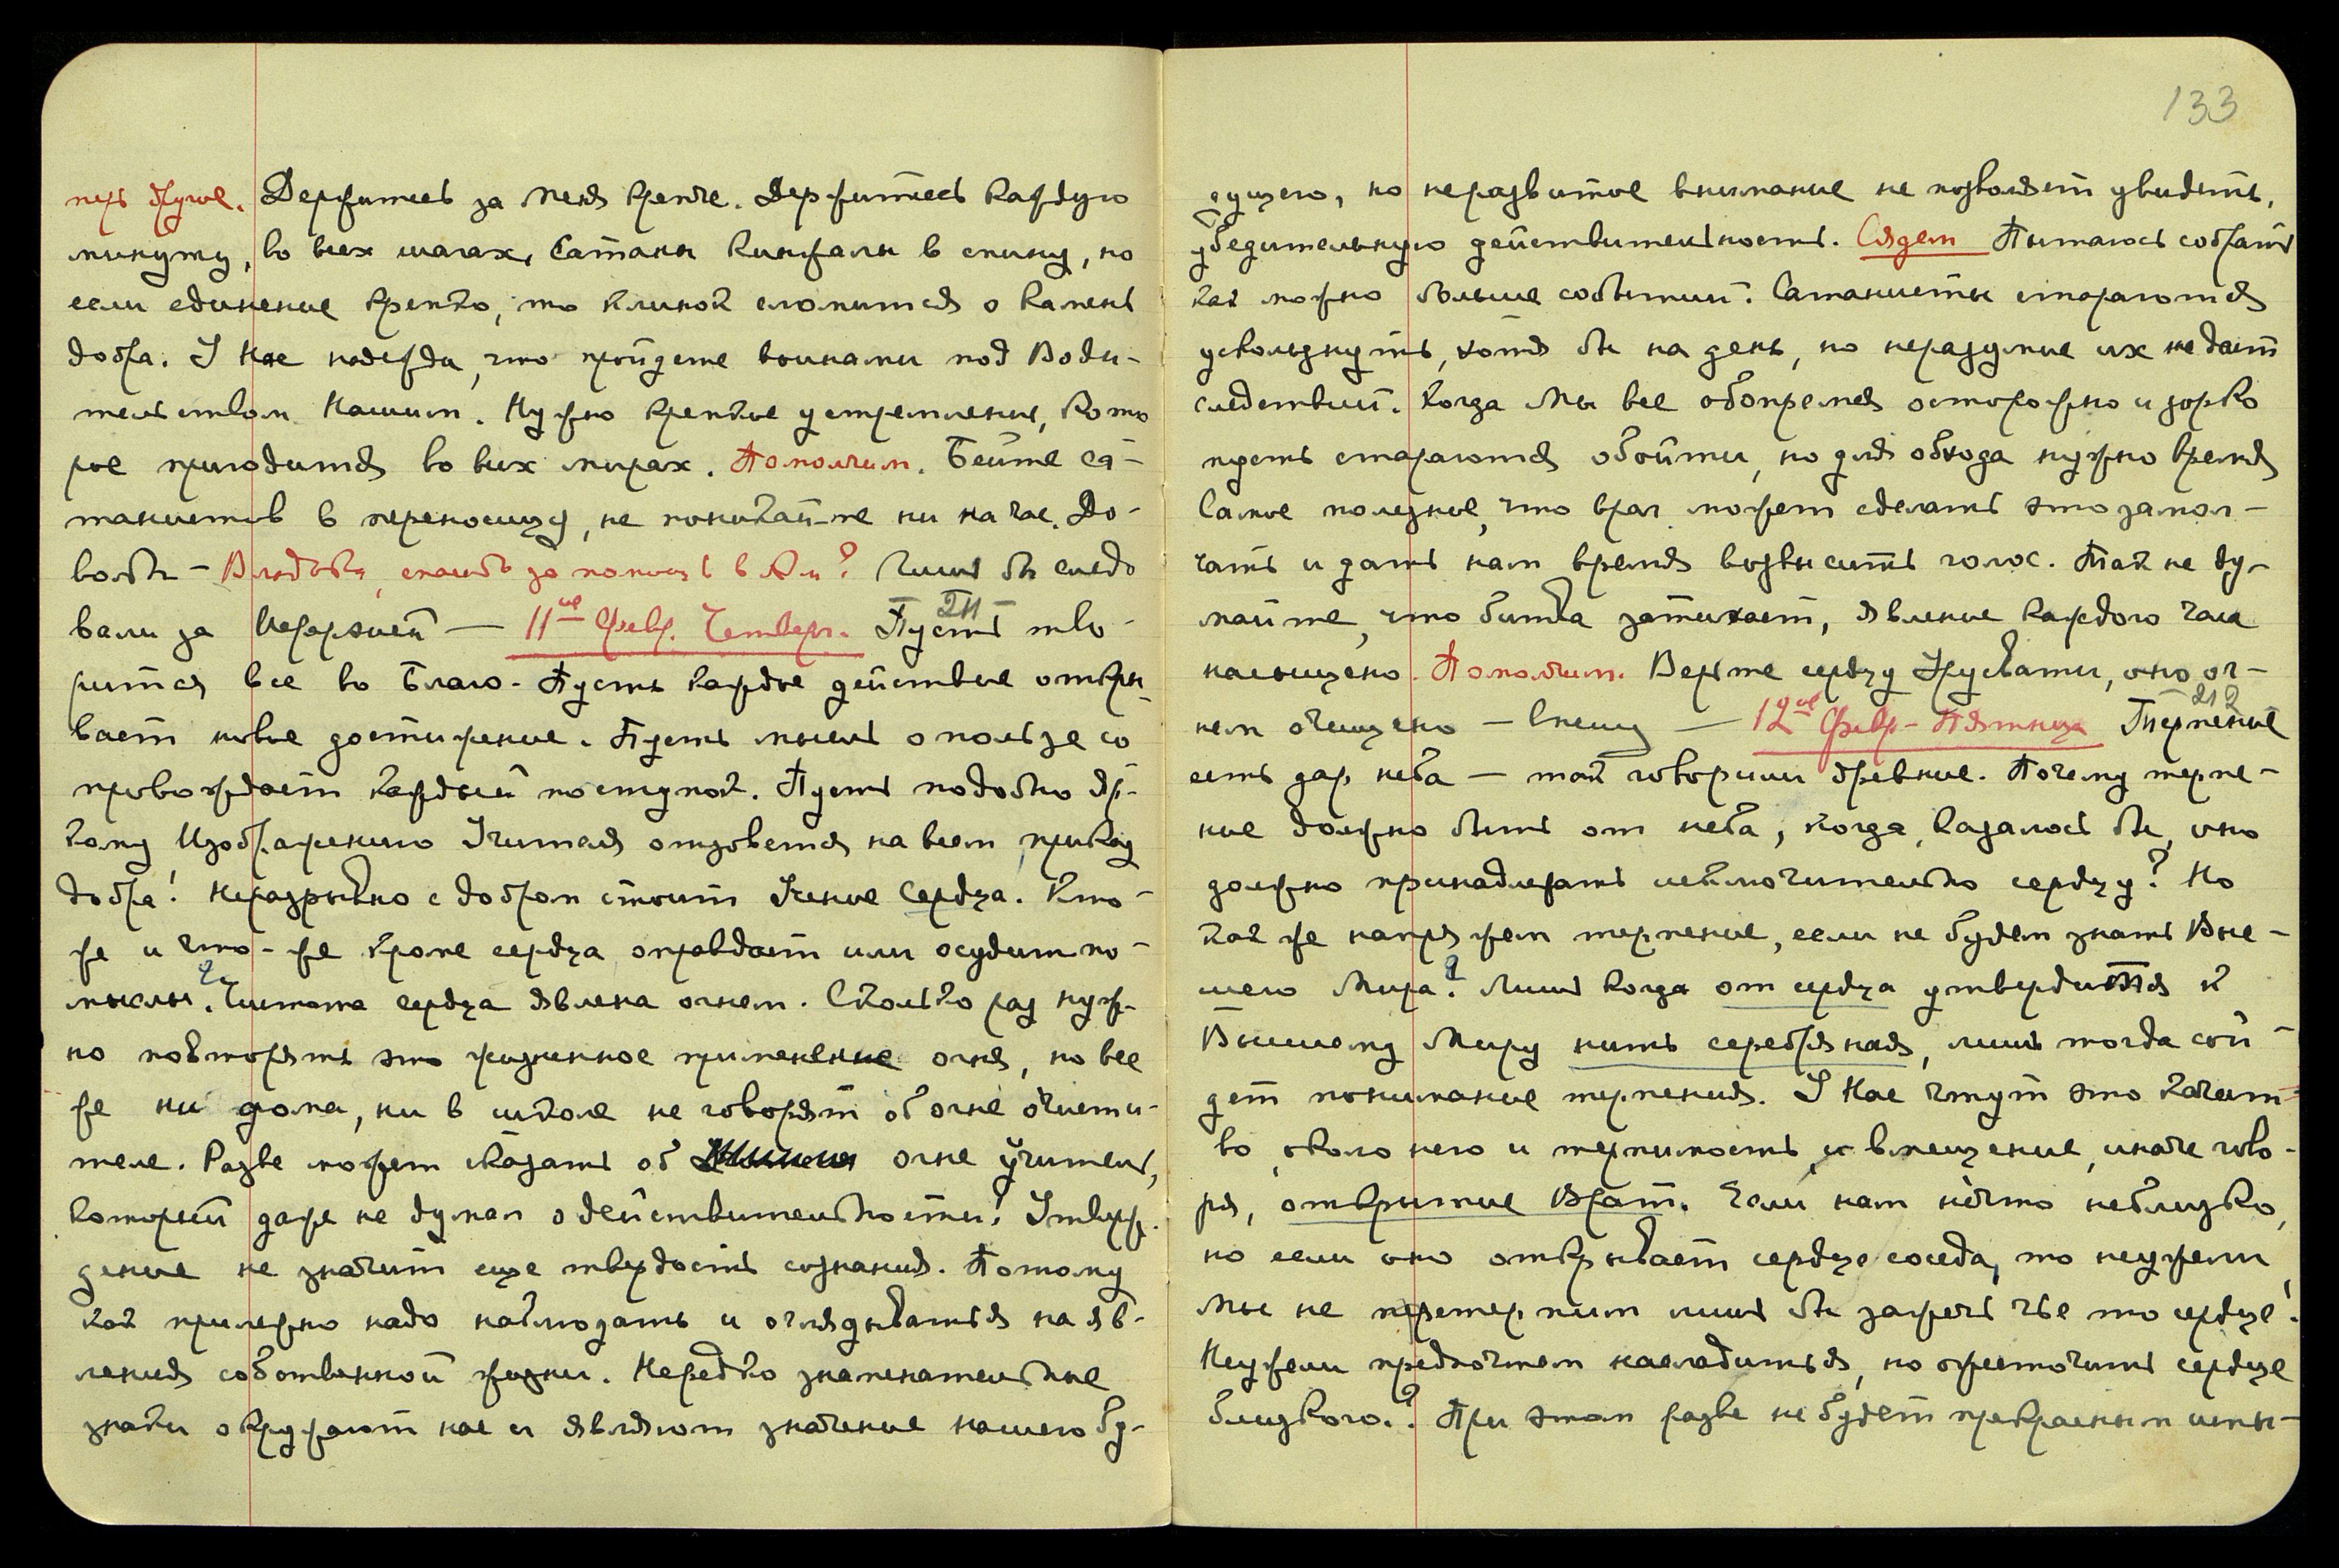 перь другое. Держитесь за Меня крепче. Держитесь каждую
минуту, во всех шагах. Сатаны кинжалы в спину, но
если единение крепко, то клинок сломится о камень
добра. У Нас надежда, что пройдете воинами под Води-
тельством Нашим. Нужно крепкое устремление, кото
рое пригодится во всех мирах. Помолчим. Бейте са-
танистов в переносицу, не поникайте ни на час. До-
вольно – Владыка, спасибо за помощь в
вали за Иерархией — 11ое Февр. Четверг. Пусть тво-
211
рится все во Благо. Пусть каждое действие откры-
вает новое достижение. Пусть мысль о пользе со
провождает каждый поступок. Пусть подобно яр-
кому Изображению Учителя отзовется на всем приказ
добра! Неразрывно с добром стоит Учение Сердца. Кто-
же и что-же кроме сердца оправдает или осудит по-
мыслы? Чистота сердца явлена огнем. Сколько раз нуж-
но повторять это жизненное применение огня, но все
же ни дома, ни в школе не говорят об огне очисти-
теле. Разве может сказать об огне учитель,
который даже не думал о действительности! Утверж-
дение не значит еще твердость сознания. Потому
как прилежно надо наблюдать и оглядываться на яв-
ления собственной жизни. Нередко знаменательные
знаки окружают нас и являют значение нашего бу-
133
дущего, но неразвитое внимание не позволяет увидеть,
убедительную действительность. Сядем Пытаюсь собрать
как можно больше событий. Сатанисты стараются
ускользнуть, хотя бы на день, но неразумие их не дает
следствий. Когда Мы все обопремся осторожно и зорко
пусть стараются обойти, но для обхода нужно время
Самое полезное, что враг может сделать это замол-
чать и дать нам время возвысить голос. Так не ду-
майте, что битва затихает, явление каждого часа
насыщено. Помолчим. Верьте сердцу Урусвати, оно ог-
нем очищено – спешу — 12ое Февр – Пятница Терпение
212
есть дар неба — так говорили древние. Почему терпе-
ние должно быть от неба, когда, казалось бы, оно
должно принадлежать исключительно сердцу? Но
как же напряжем терпение, если не будем знать Выс-
шего Мира? Лишь когда от сердца утвердится к
Высшему Миру нить серебряная, лишь тогда сой
дет понимание терпения. У Нас чтут это качест-
во, около него и терпимость и вмещение, иначе гово-
ря, открытие Врат. Если нам нечто неблизко,
но если оно открывает сердце соседа, то неужели
мы не перетерпим лишь бы зажечь чье то сердце!
Неужели предпочтем насладиться, но ожесточить сердце
близкого.? При этом разве не будет прекрасным испы-